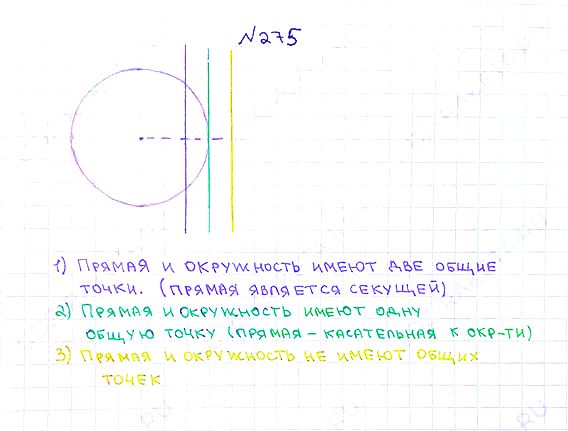 №275
1) ПРЯМАЯ И ОКРУЖНОСТЬ ИМЕЮТ ДВЕ ОБЩИЕ
ТОЧКИ. (ПРЯМАЯ ЯВЛЯЕТСЯ СЕКУЩЕЙ)
2) ПРЯМАЯ И ОКРУЖНОСТЬ ИМЕЮТ ОДНУ
ОБЩУЮ ТОЧКУ (ПРЯМАЯ – КАСАТЕЛЬНАЯ К ОКР-ТИ)
3) ПРЯМАЯ И ОКРУЖНОСТЬ НЕ ИМЕЮТ ОБЩИХ
ТОЧЕК